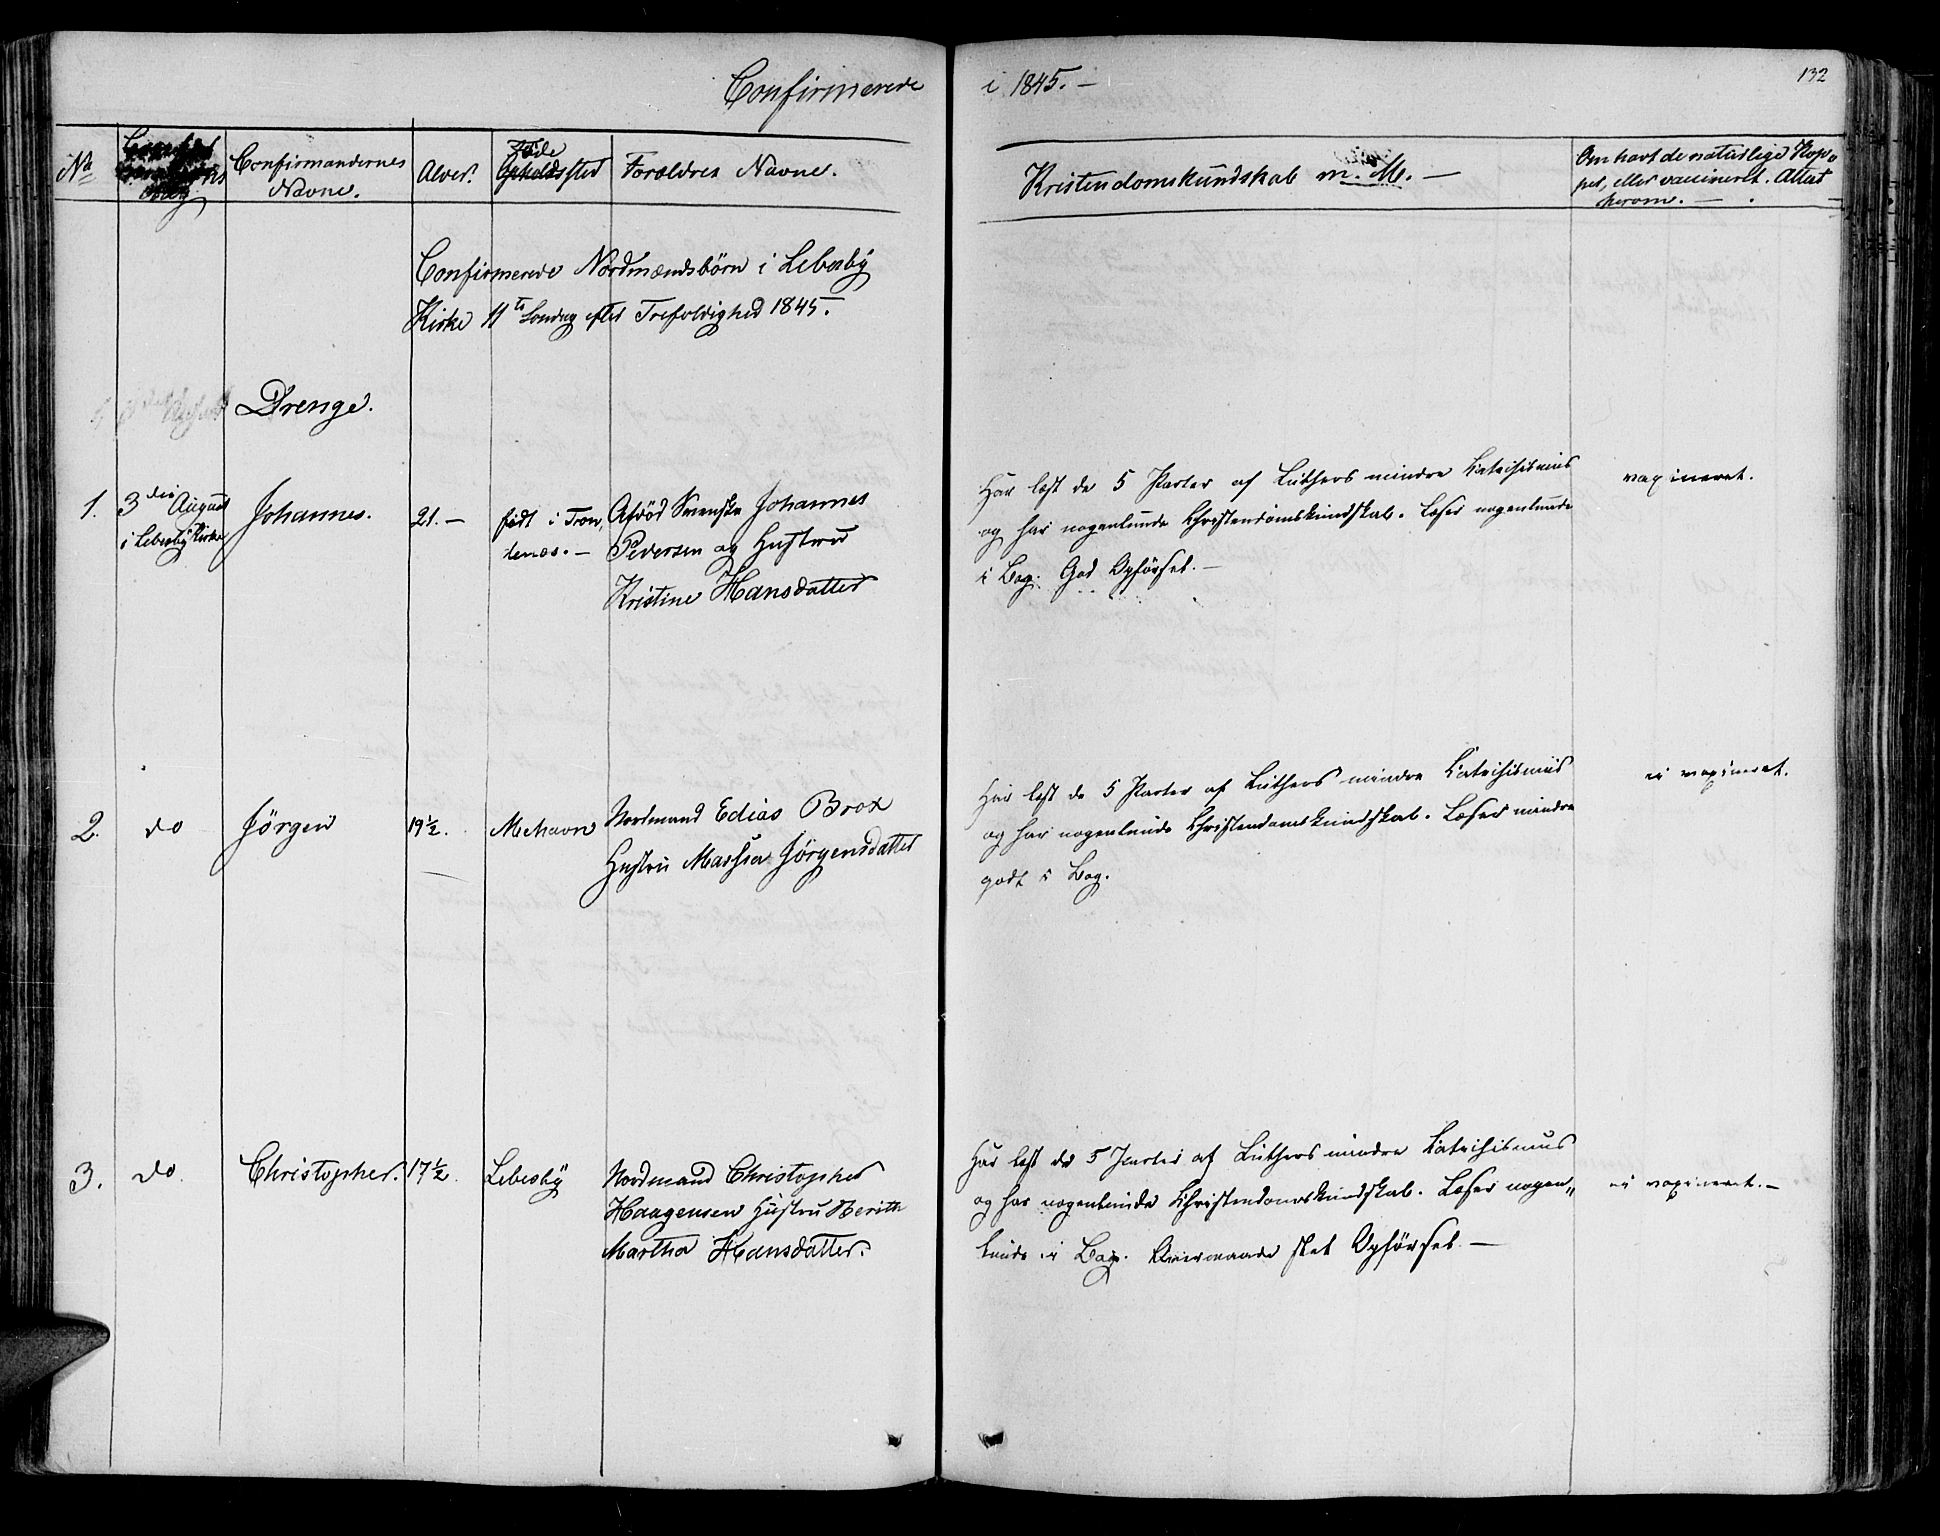 Confirmerede i 1845.—
132
No
Confirmandernes Navne.
Alder.
Föde sted
Forældres Navne.
Kristendomskundskab m. M. —
Om havt de naturlige Kop-
per, eller vaccineret. Attest
herom. —
Confirmerede Nordmændsbörn i Lebesby
Kirke 11te Söndag efter Trefoldighed 1845.
Drenge.
1.
3die August
i Lebesby Kirke
Johannes.
21.—
födt i Tron
denæs.—
Afdöd Svenske Johannes
Pedersen og Hustru
Kristine Hansdatter
Har læst de 5 Parter af Luthers mindre Katechismus
og har nogenlunde Christendomskundskab. Læser nogenlunde
i Bog. God Opförsel.—
vaxineret.
2.
do
Jörgen
19½.
Mehavn
Nordmand Edias Brox
Hustru Massia Jörgensdatter
Har læst de 5 Parter af Luthers mindre Katechismus
og har nogenlunde Christendomskundskab. Læser mindre
godt i Bog.
ei vaxineret.
3.
do.
Christopher.
17½.
Lebesby
Nordmand Christopher
Haagensen Hustru Berith
Martha Hansdatter.
Har læst de 5 Parter af Luthers mindre Katechismus
og har nogenlunde Christendomskundskab. Læser nogen„
lunde i Bog. sket Opförsel.—
ei vaxineret.—